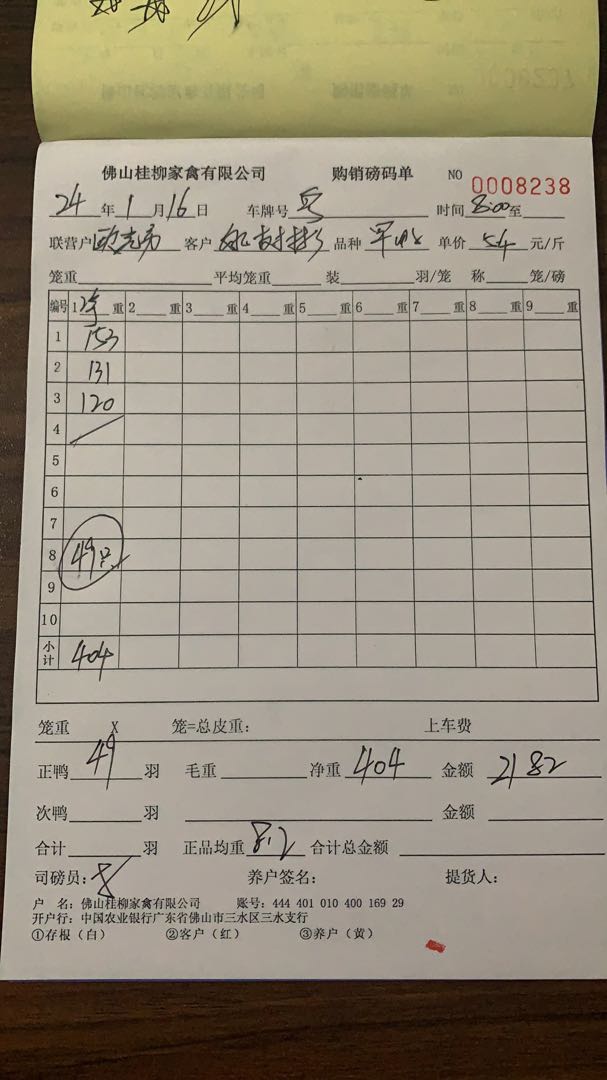 佛山桂柳家禽有限公司 购销磅码单 NO 0008238
24年1月16日 车牌号 时间8:00至
联营户 客户 品种 单价54元/斤
笼重 平均笼重 装 羽/笼 称 笼/磅
编号 1 重 2 重 3 重 4 重 5 重 6 重 7 重 8 重 9 重
1 153
2 131
3 120
4
5
6
7
8 49只
9
10
小计 404
笼重 X 笼=总皮重: 上车费
正鸭49羽 毛重 净重404 金额2182
次鸭 羽 金额
合计 羽 正品均重8.2 合计总金额
司磅员: 养户签名: 提货人:
户 名: 佛山桂柳家禽有限公司 账号: 444 401 010 400 169 29
开户行: 中国农业银行广东省佛山市三水区三水支行
①存根(白) ②客户(红) ③养户(黄)